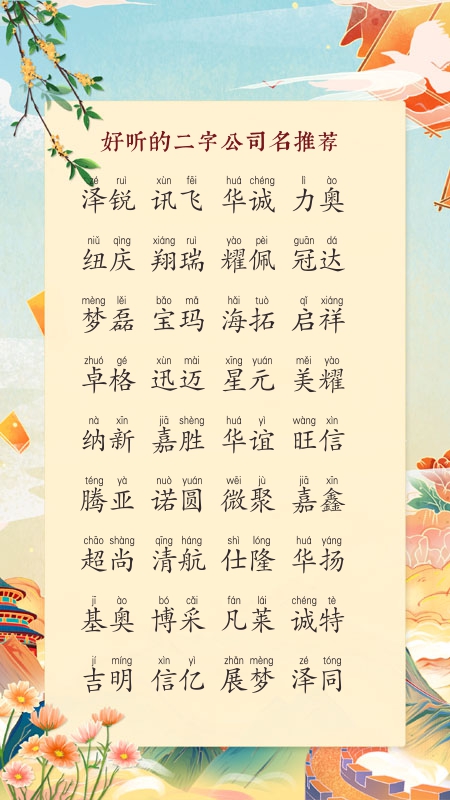 好听的二字公司名推荐
zé ruì xùn fēi huá chéng lì ào
泽锐 讯飞 华诚 力奥
niǔ qìng xiáng ruì yào pèi guān dá
纽庆 翔瑞 耀佩 冠达
mèng lěi bǎo mǎ hǎi tuò qǐ xiáng
梦磊 宝玛 海拓 启祥
zhuó gé xùn mài xīng yuán měi yào
卓格 迅迈 星元 美耀
nà xīn jiā shèng huá yì wàng xìn
纳新 嘉胜 华谊 旺信
téng yà nuò yuán wēi jù jiā xīn
腾亚 诺圆 微聚 嘉鑫
chāo shàng qīng háng shì lóng huá yáng
超尚 清航 仕隆 华扬
jī ào bó cǎi fán lái chéng tè
基奥 博采 凡莱 诚特
jí míng xìn yì zhǎn mèng zé tóng
吉明 信亿 展梦 泽同